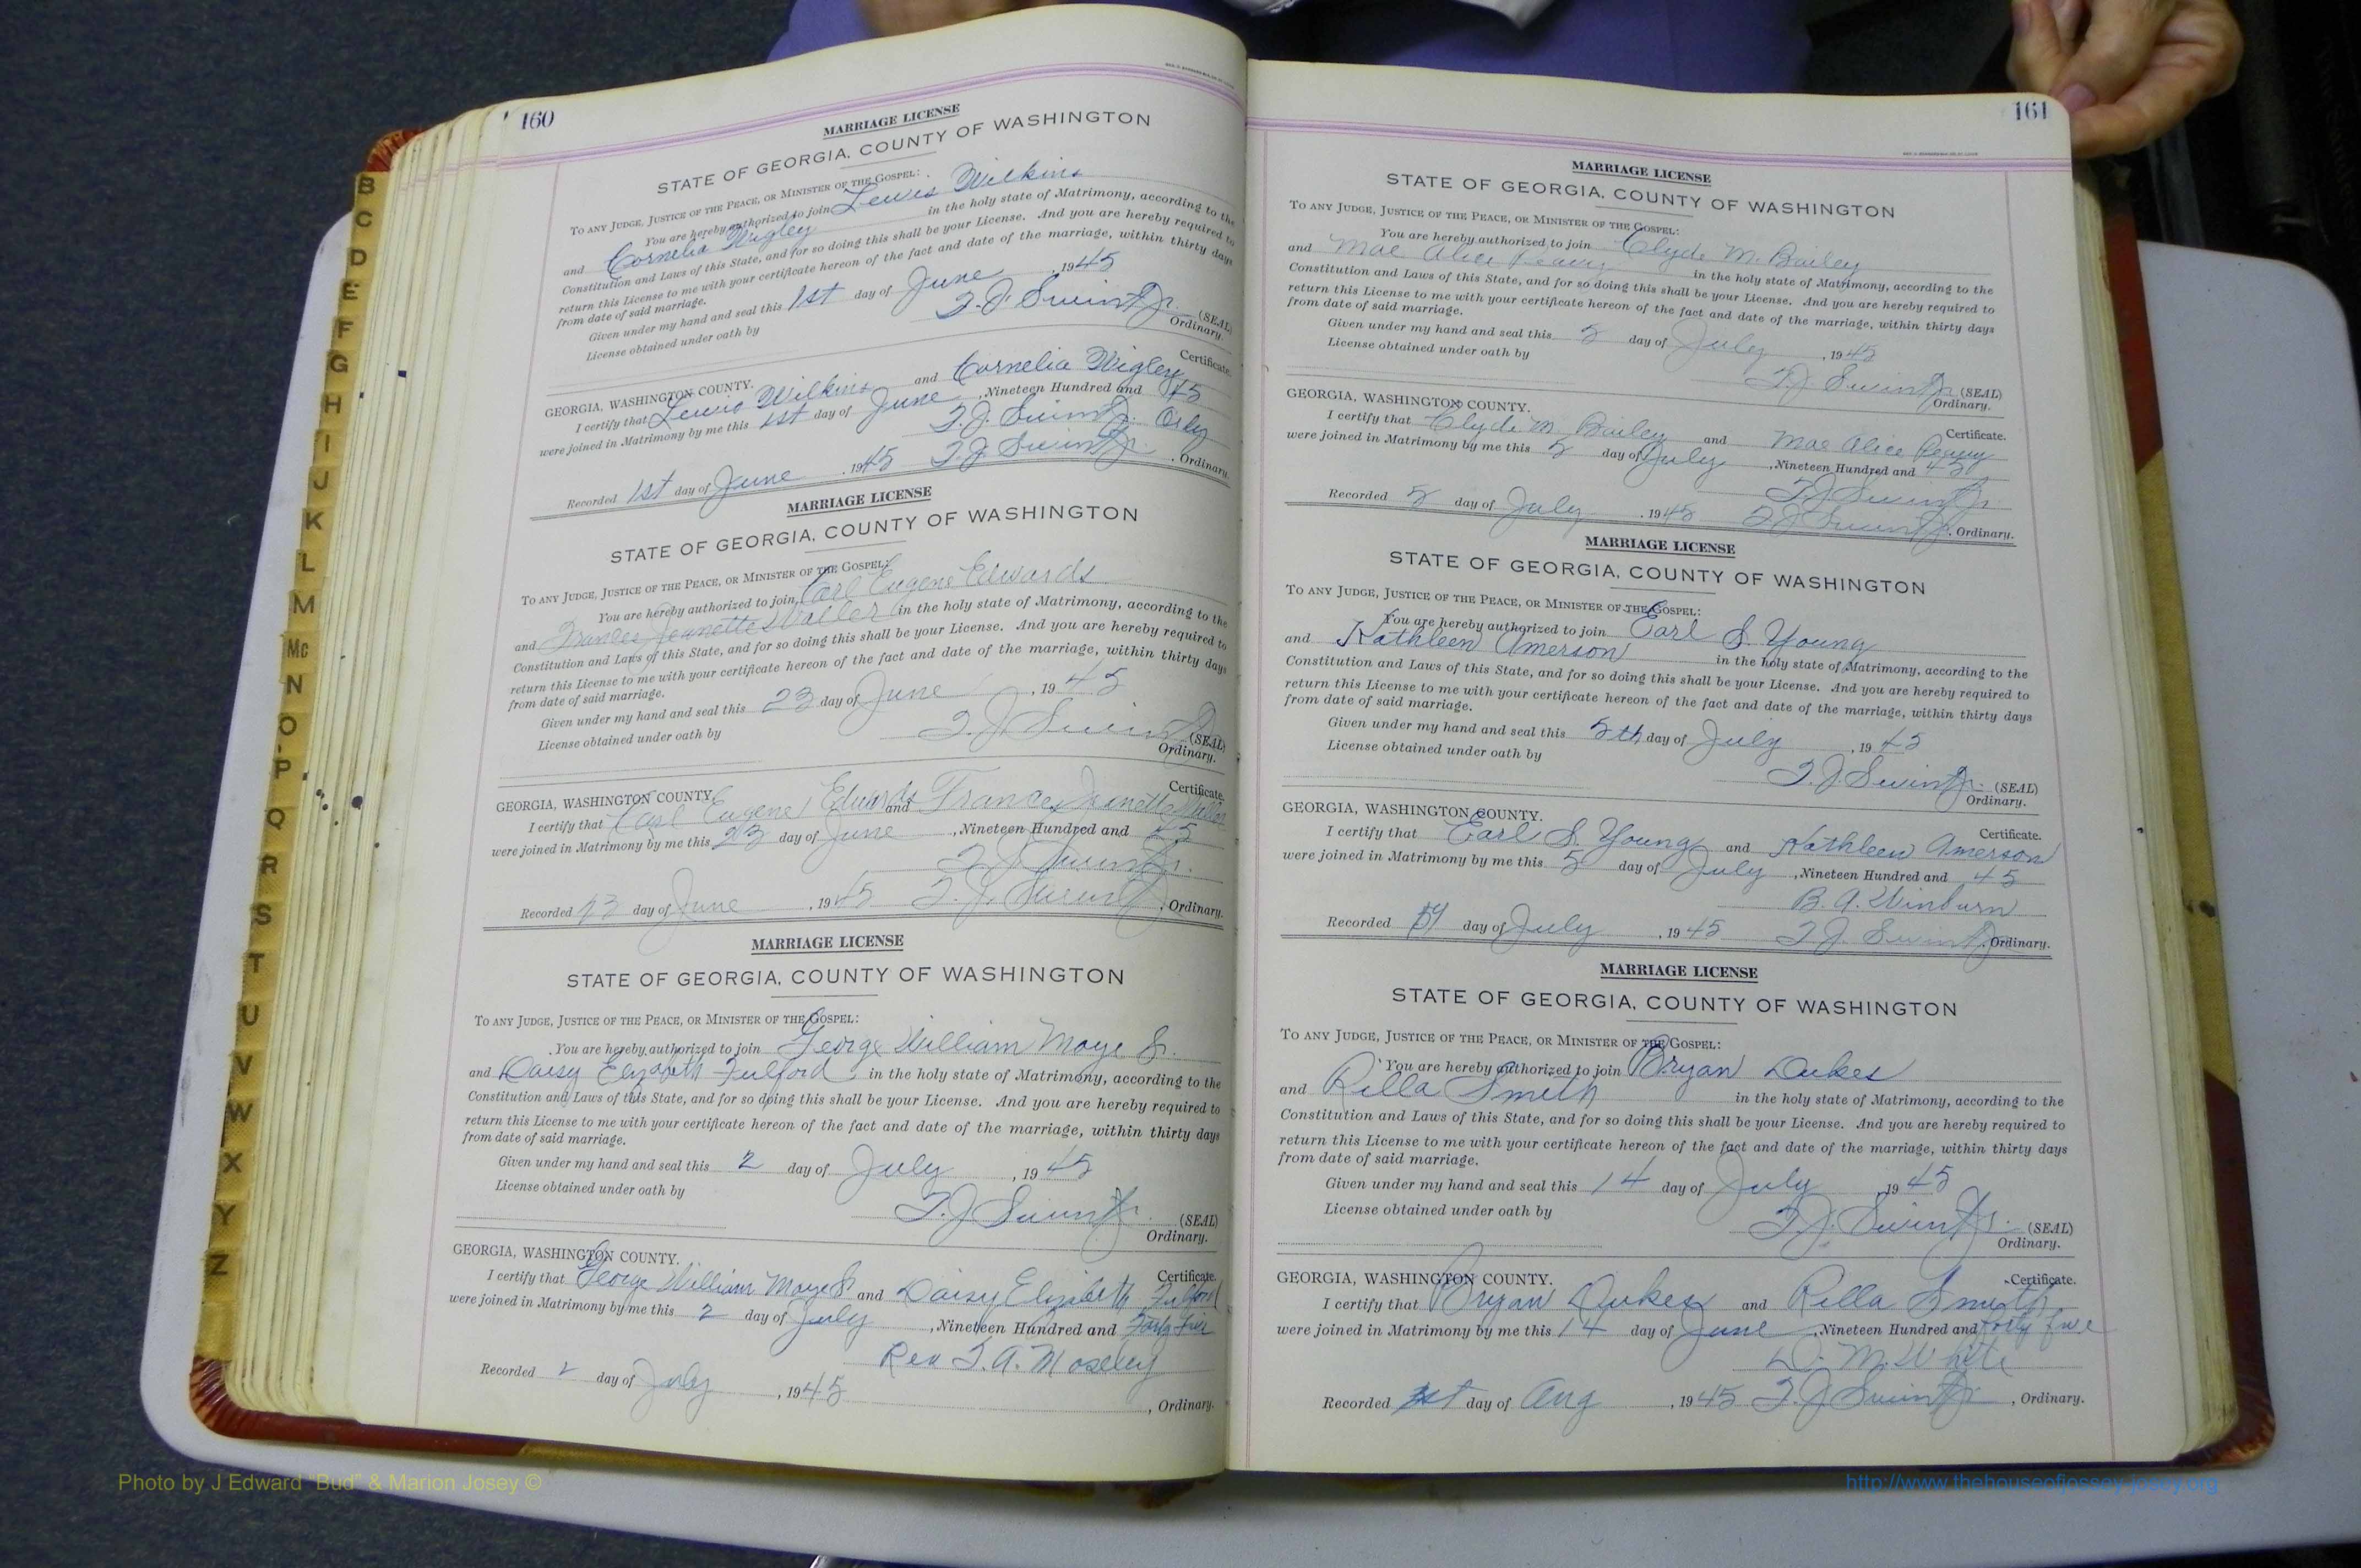 160
MARRIAGE LICENSE
STATE OF GEORGIA, COUNTY OF WASHINGTON
TO ANY JUDGE, JUSTICE OF THE PEACE, OR MINISTER OF THE GOSPEL:
You are hereby authorized to join Lewis Wilkins
and Cornelia Wigley in the holy state of Matrimony, according to the
Constitution and Laws of this State, and for so doing this shall be your License. And you are hereby required to
return this License to me with your certificate hereon of the fact and date of the marriage, within thirty days
from date of said marriage.
Given under my hand and seal this 1st day of June, 1945
License obtained under oath by
T. J. Swint Jr. (SEAL)
Ordinary.
GEORGIA, WASHINGTON COUNTY. Certificate.
I certify that Lewis Wilkins and Cornelia Wigley
were joined in Matrimony by me this 1st day of June, Nineteen Hundred and 45
T. J. Swint Jr. Ordy
Recorded 1st day of June, 1945 T. J. Swint Jr., Ordinary.
MARRIAGE LICENSE
STATE OF GEORGIA, COUNTY OF WASHINGTON
TO ANY JUDGE, JUSTICE OF THE PEACE, OR MINISTER OF THE GOSPEL:
You are hereby authorized to join Carl Eugene Edwards
and Frances Jeanette Waller in the holy state of Matrimony, according to the
Constitution and Laws of this State, and for so doing this shall be your License. And you are hereby required to
return this License to me with your certificate hereon of the fact and date of the marriage, within thirty days
from date of said marriage.
Given under my hand and seal this 23 day of June, 1945
License obtained under oath by
T. J. Swint Jr. (SEAL)
Ordinary.
GEORGIA, WASHINGTON COUNTY. Certificate.
I certify that Carl Eugene Edwards and Frances Jeanette Waller
were joined in Matrimony by me this 23 day of June, Nineteen Hundred and 45
T. J. Swint Jr.
Recorded 23 day of June, 1945 T. J. Swint Jr, Ordinary.
MARRIAGE LICENSE
STATE OF GEORGIA, COUNTY OF WASHINGTON
TO ANY JUDGE, JUSTICE OF THE PEACE, OR MINISTER OF THE GOSPEL:
You are hereby authorized to join George William Moye Sr.
and Daisy Elizabeth Fulford in the holy state of Matrimony, according to the
Constitution and Laws of this State, and for so doing this shall be your License. And you are hereby required to
return this License to me with your certificate hereon of the fact and date of the marriage, within thirty days
from date of said marriage.
Given under my hand and seal this 2 day of July, 1945
License obtained under oath by
T. J. Swint Jr. (SEAL)
Ordinary.
GEORGIA, WASHINGTON COUNTY. Certificate.
I certify that George William Moye Sr and Daisy Elizabeth Fulford
were joined in Matrimony by me this 2 day of July, Nineteen Hundred and Forty Five
Rev T. A. Moseley
Recorded 2 day of July, 1945 , Ordinary.
161
MARRIAGE LICENSE
STATE OF GEORGIA, COUNTY OF WASHINGTON
TO ANY JUDGE, JUSTICE OF THE PEACE, OR MINISTER OF THE GOSPEL:
You are hereby authorized to join Clyde M. Bailey
and Mae Alice Peavy in the holy state of Matrimony, according to the
Constitution and Laws of this State, and for so doing this shall be your License. And you are hereby required to
return this License to me with your certificate hereon of the fact and date of the marriage, within thirty days
from date of said marriage.
Given under my hand and seal this 5 day of July, 1945
License obtained under oath by
T. J. Swint Jr (SEAL)
Ordinary.
GEORGIA, WASHINGTON COUNTY. Certificate.
I certify that Clyde M. Bailey and Mae Alice Peavy
were joined in Matrimony by me this 5 day of July, Nineteen Hundred and 45
T. J. Swint Jr.
Recorded 5 day of July, 1945 T. J. Swint Jr, Ordinary.
MARRIAGE LICENSE
STATE OF GEORGIA, COUNTY OF WASHINGTON
TO ANY JUDGE, JUSTICE OF THE PEACE, OR MINISTER OF THE GOSPEL:
You are hereby authorized to join Earl S. Young
and Kathleen Amerson in the holy state of Matrimony, according to the
Constitution and Laws of this State, and for so doing this shall be your License. And you are hereby required to
return this License to me with your certificate hereon of the fact and date of the marriage, within thirty days
from date of said marriage.
Given under my hand and seal this 5th day of July, 1945
License obtained under oath by
T. J. Swint Jr. (SEAL)
Ordinary.
GEORGIA, WASHINGTON COUNTY. Certificate.
I certify that Earl S. Young and Kathleen Amerson
were joined in Matrimony by me this 5 day of July, Nineteen Hundred and 45
B. A. Winburn
Recorded day of July, 1945 T. J. Swint Jr, Ordinary.
MARRIAGE LICENSE
STATE OF GEORGIA, COUNTY OF WASHINGTON
TO ANY JUDGE, JUSTICE OF THE PEACE, OR MINISTER OF THE GOSPEL:
You are hereby authorized to join Bryan Dukes
and Rilla Smith in the holy state of Matrimony, according to the
Constitution and Laws of this State, and for so doing this shall be your License. And you are hereby required to
return this License to me with your certificate hereon of the fact and date of the marriage, within thirty days
from date of said marriage.
Given under my hand and seal this 14 day of July, 1945
License obtained under oath by
T. J. Swint Jr. (SEAL)
Ordinary.
GEORGIA, WASHINGTON COUNTY. Certificate.
I certify that Bryan Dukes and Rilla Smith
were joined in Matrimony by me this 14 day of June, Nineteen Hundred and forty five
D. M. White
Recorded 1st day of Aug, 1945 T. J. Swint Jr, Ordinary.
B
C
D
E
F
G
H
I
J
K
L
M
Mc
N
O
P
Q
R
S
T
U
V
W
X
Y
Z
Photo by J Edward "Bud" & Marion Josey ©
http://www.thehouseofjossey-josey.org